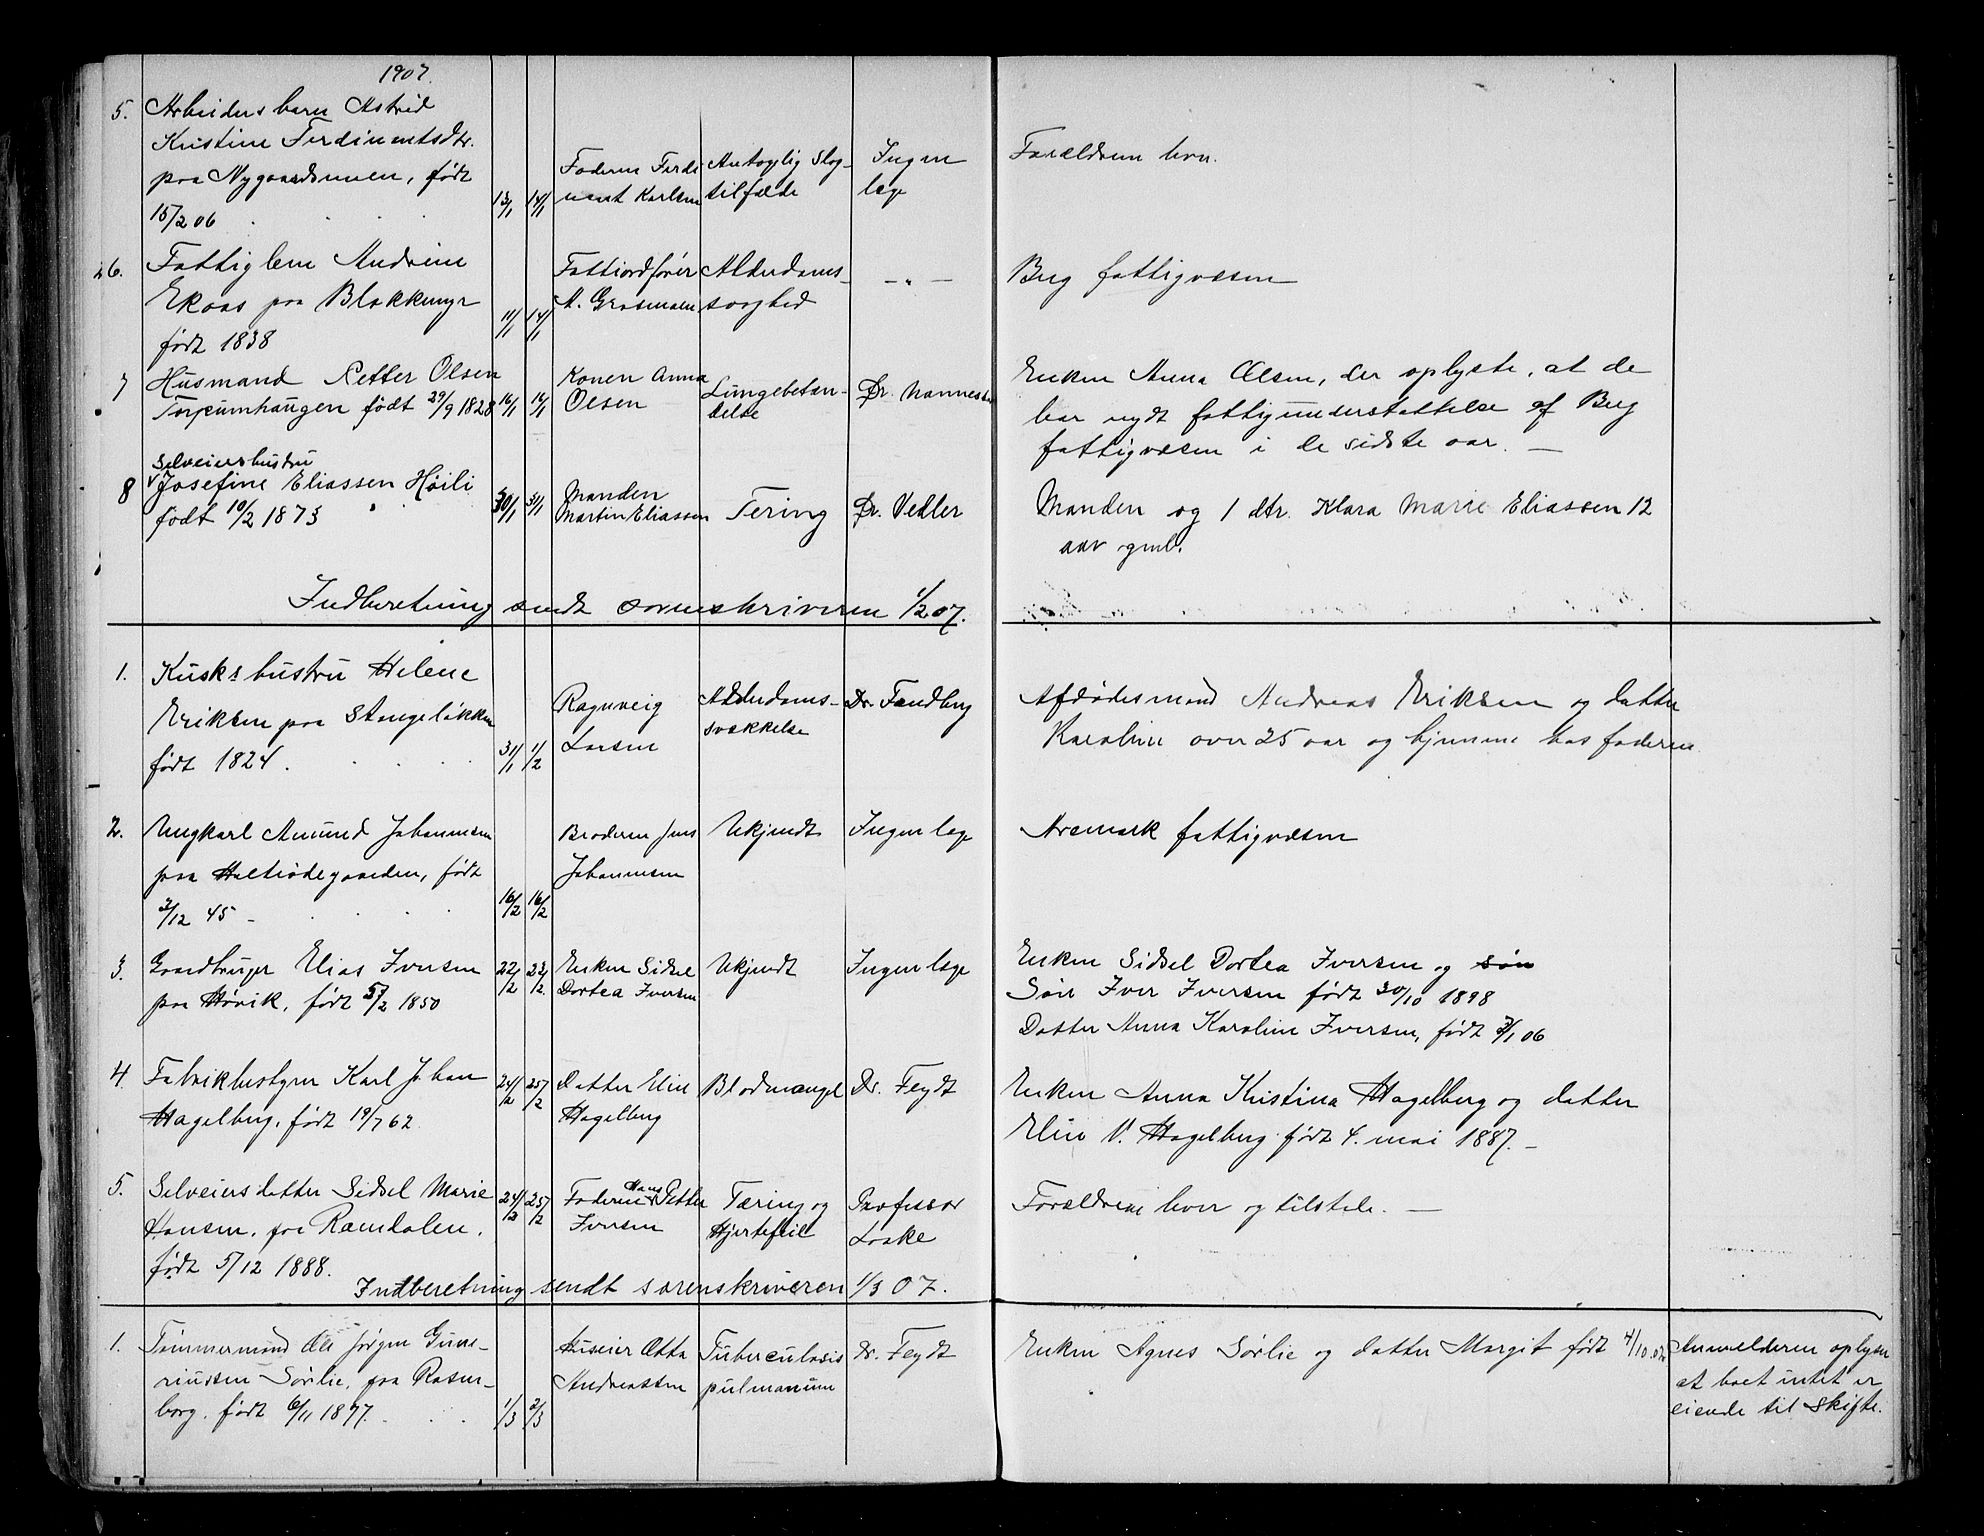 1907.
5. Arbeiders barn Astrid
Kristine Ferdinantsdtr.
paa Nygaardsmuen, født
15/2 06
13/1 14/1
Faderen Ferdi
nant Karlsen
Antagelig slag-
tilfælde
Ingen
læge
Forældrene lever.
6. Fattiglem Andrine
Ekaas paa Blakkemyr
født 1838
11/1 14/1
Fattiordfører
A. Grasmaen
Alderdoms-
svaghed
— „ —
Berg fattigvæsen
7 Husmand Petter Olsen
Torpumhaugen født 29/9 1828
16/1 16/1
Konen Anna
Olsen
Lungebetæn-
delse
Dr. Nannestad
Enken Anna Olsen, der oplyste, at de
har nydt fattigunderstøttelse af Berg
fattigvæsen i de sidste aar. —
Selveiershustru
8 Josefine Eliassen Høili
født 10/2 1873
30/1 31/1
Manden
Martin Eliassen
Tering
Dr. Vedler
Manden og 1 dtr. Klara Marie Eliassen 12
aar gml.
Indberetning sendt sorenskriveren 1/2 07.
1. Kuskshustru Helene
Eriksen paa Stangeløkken
født 1824.
31/1 1/2
Ragnveig
Larsen
Alderdoms-
svækkelse
Dr. Fandberg
Afdødes mand Andreas Eriksen og datter
Karoline over 25 aar og hjemme hos faderen
2. Ungkarl Amund Johannesen
paa Holtiødegaarden, født
3/12 45 —
16/2 16/2
Broderen Jens
Johannesen
Ukjendt
Ingen læge
Aremark fattigvæsen
3. Gaardbruger Elias Iversen
paa Høvik, født 5/2 1850
22/2 23/2.
Enken Sidsel
Dortea Iversen
Ukjendt
Ingen læge
Enken Sidsel Dortea Iversen og søn
Søn Iver Iversen født 30/10 1898
Datter Anna Karoline Iversen, født 3/1 06
4. Fabrikbestyrer Karl Johan
Hagelberg, født 19/7 62
24/2 25/2
Datter Elin
Hagelberg
Blodmangel
Dr. Feydt
Enken Anna Kristina Hagelberg og datter
Elin V. Hagelberg født 4. mai 1887. —
5. Selveiersdatter Sidsel Marie
Hansen, fra Ramdalen,
født 5/12 1888.
24/2 25/2
Faderen Hans Petter
Iversen
Tæring og
Hjertefeil
Professor
Laake
Forældrene lever og tilstede. —
Indberetning sendt sorenskriveren 1/3 07.
1. Tømmermand Ole Jørgen Gun-
eriussen Sørlie, paa Rosen-
borg, født 6/11 1877.
1/3 2/3
Huseier Otto
Andreassen
Tuberculosis
pulmanum
Dr. Feydt
Enken Agnes Sørlie og datter Margit født 4/10.02
Anmelderen oplyser
at boet intet er
eiende til skifte.